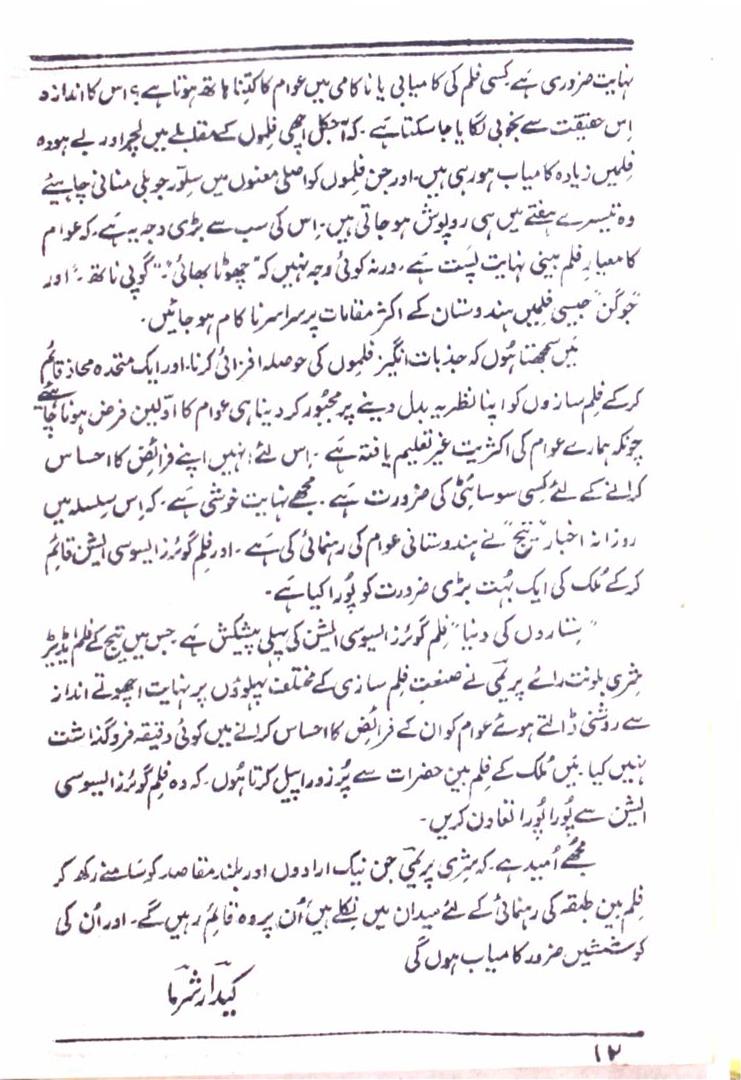 نہایت ضروری ہے۔ کسی فلم کی کامیابی یا ناکامی میں عوام کا کتنا ہاتھ ہوتا ہے؟ اس کا اندازہ
اِس حقیقت سے بخوبی لگایا جا سکتا ہے۔ کہ آجکل اچھی فلموں کے مقابلے میں لچر اور بے ہودہ
فلمیں زیادہ کامیاب ہو رہی ہیں۔ اور جن فلموں کو اصلی معنوں میں سلور جوبلی منانی چاہیئے
وہ تیسرے ہفتے میں ہی روپوش ہو جاتی ہیں۔ اِس کی سب سے بڑی وجہ یہ ہے۔ کہ عوام
کا معیارِ فلم بینی نہایت پست ہے۔ ورنہ کوئی وجہ نہیں کہ "چھوٹا بھائی"۔ "گوپی ناتھ"۔ اور
"جوگن" جیسی فلمیں ہندوستان کے اکثر مقامات پر سراسر ناکام ہو جائیں۔
میں سمجھتا ہوں کہ جذبات انگیز فلموں کی حوصلہ افزائی کرنا۔ اور ایک متحدہ محاذ قائم
کر کے فلم سازوں کو اپنا نظریہ بدل دینے پر مجبور کر دینا ہی عوام کا اوّلین فرض ہونا چاہیئے
چونکہ ہمارے عوام کی اکثریت غیر تعلیم یافتہ ہے۔ اِس لئے اُنہیں اپنے فرائض کا احساس
کرانے کے لئے کسی سوسائٹی کی ضرورت ہے۔ مجھے نہایت خوشی ہے۔ کہ اِس سلسلہ میں
روزانہ اخبار "تیج" نے ہندوستانی عوام کی رہنمائی کی ہے۔ اور فلم گوئرز ایسوسی ایشن قائم
کر کے مُلک کی ایک بہُت بڑی ضرورت کو پُورا کیا ہے۔
"ستاروں کی دنیا" فلم گوئرز ایسوسی ایشن کی پہلی پیشکش ہے۔ جس میں تیج کے فلم ایڈیٹر
شری بلونت رائے پریمی نے صنعتِ فلم سازی کے مختلف پہلوؤں پر نہایت اچھوتے انداز
سے روشنی ڈالتے ہوئے عوام کو ان کے فرائض کا احساس کرانے میں کوئی دقیقہ فروگذاشت
نہیں کیا۔ میں مُلک کے فلم بین حضرات سے پُرزور اپیل کرتا ہُوں۔ کہ وہ فلم گوئرز ایسوسی
ایشن سے پُورا پُورا تعاون کریں۔
مجھے اُمید ہے۔ کہ شری پریمی جن نیک ارادوں اور بلند مقاصد کو سامنے رکھ کر
فلم بین طبقہ کی رہنمائی کے لئے میدان میں نکلے ہیں اُن پر وہ قائم رہیں گے۔ اور اُن کی
کوششیں ضرور کامیاب ہوں گی
کیدار شرما
۱۲